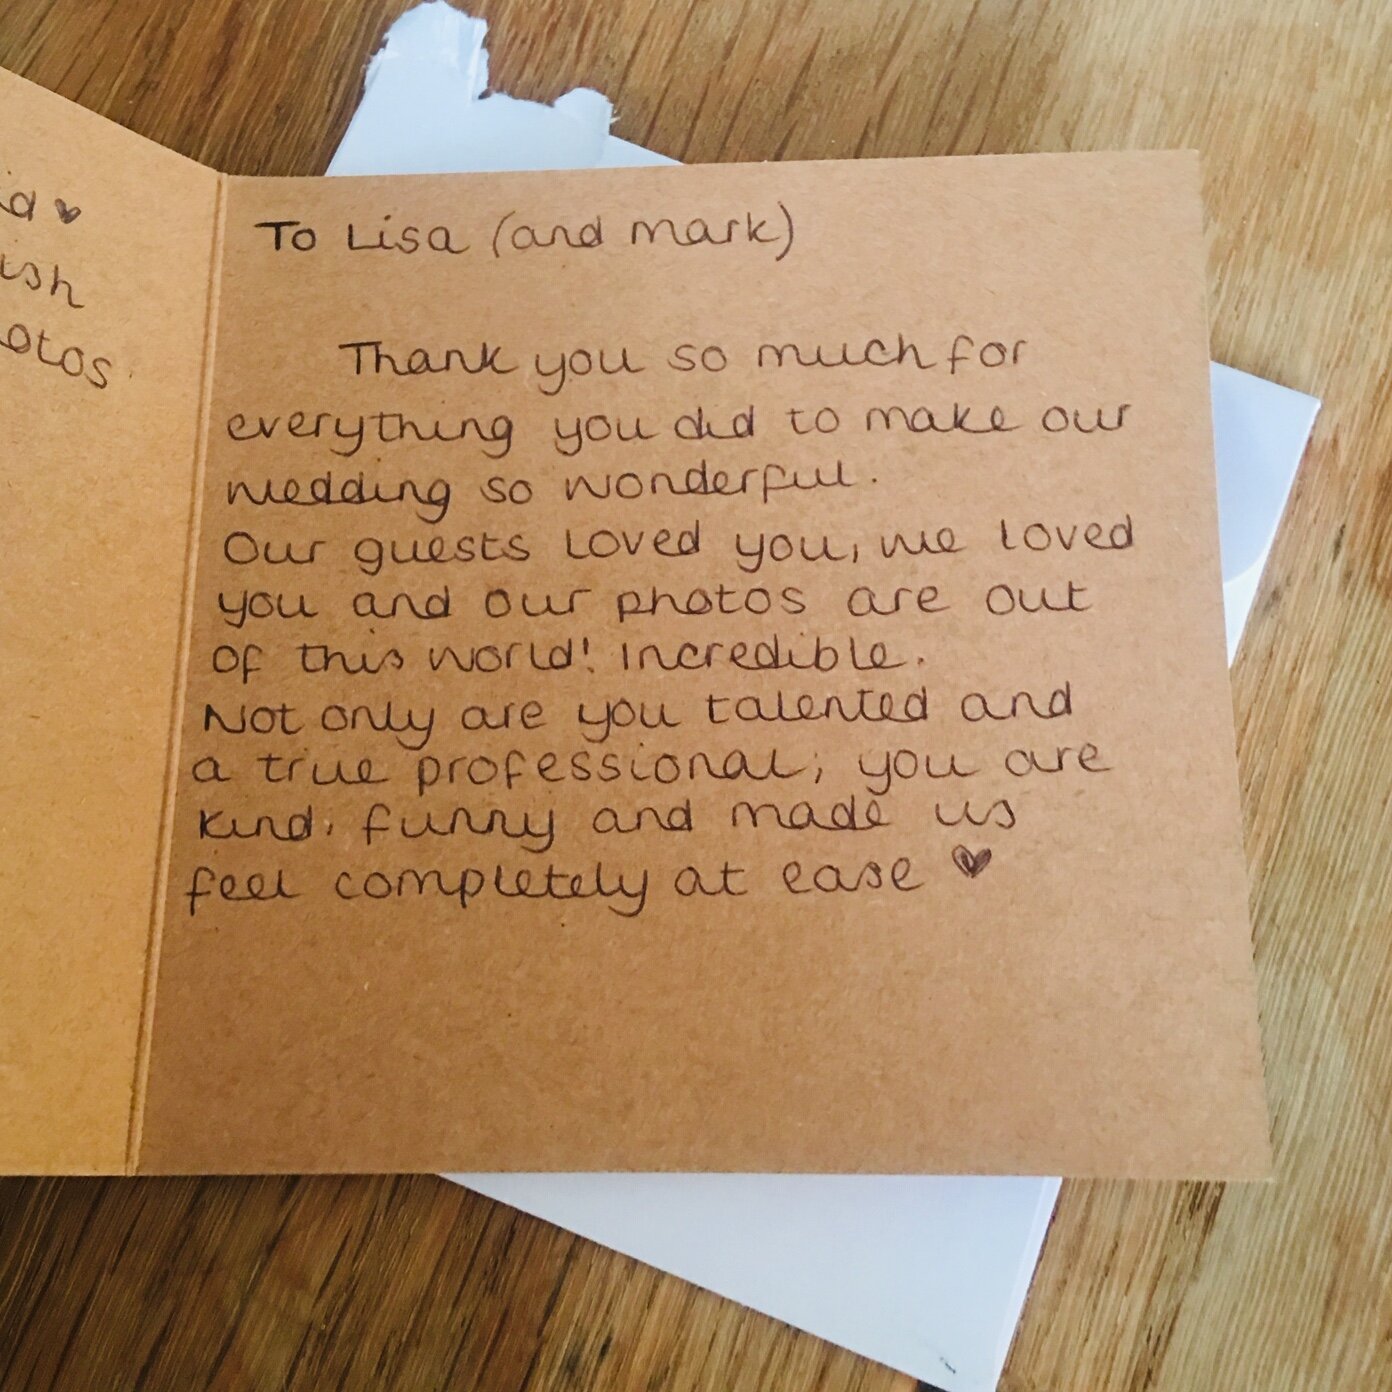 To Lisa (and mark)
Thank you so much for
everything you did to make our
wedding so wonderful.
Our guests loved you, we loved
you and our photos are out
of this world! Incredible.
Not only are you talented and
a true professional, you are
kind, funny and made us
feel completely at ease ♥